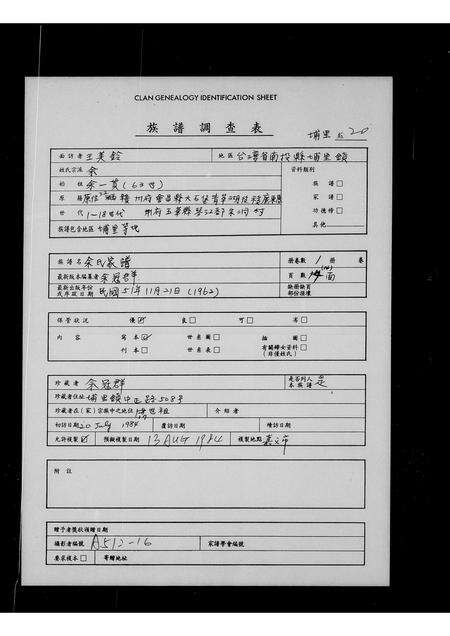 CLAN GENEALOGY IDENTIFICATION SHEET
族譜調查表
埔里 20
面訪者 王美鈴 地區 台灣省南投縣埔里鎮
姓氏宗派 余 資料類別
始祖 余一黃 (63才) 族譜□
原籍 家譜□
世代 1-18世代 功德榜□
族譜包含地區 埔里等地 其他
族譜名 余氏家譜 冊卷數 1 冊 卷
最新版本編纂者 余冠群 頁數 面
最新出版年份或序跋日期 民國51年11月21日 (1962) 缺冊缺頁部份註壞
保管狀況 優☑ 良□ 可□ 劣□
內容 寫本☑ 世系圖□ 插圖□
刊本□ 世系表□ 有關婦女資料□ (非僅姓氏)
珍藏者 余冠群 是否列入本族譜 是
珍藏者住址 埔里鎮中正路508号
珍藏者在(家)宗族中之地位 世祖 介紹者
初訪日期 20 July 1984 覆訪日期 續訪日期
允許複製☑ 預擬複製日期 13 AUG 1984 複製地點 嘉义市
附註
贈予者獎狀領贈日期
攝影者編號 A512-16 家譜學會編號
要求複本□ 寄贈地址